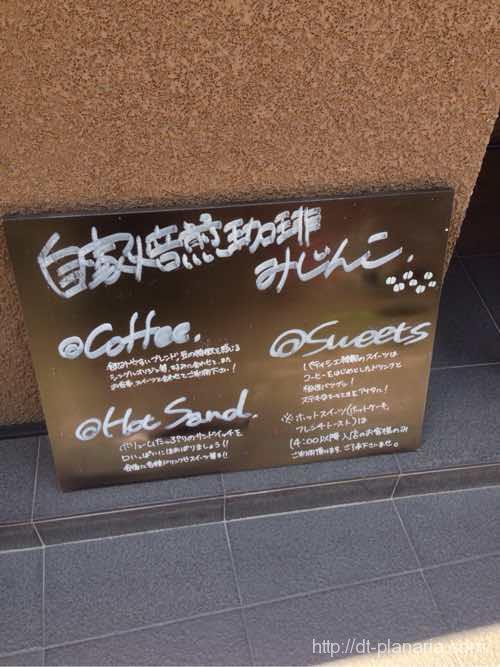 自家焙煎珈琲
みじんこ.
@Coffee.
飲みやすいブレンド、豆の特徴を感じる
シングルオリジン等、好みに合わせて、また
お食事、スイーツと合わせてご利用下さい!
@Hot Sand.
ボリュームたっぷりのサンドイッチを
口いっぱいにほおばりましょう!!
@Sweets
パティシエ特製のスイーツは
コーヒーをはじめとしたドリンクと
相性バツグン!
※ホットスイーツ(ホットケーキ、
フレンチトースト)は
14:00以降入店のお客様のみ
ご利用頂けます。ご了承下さいませ。
http://dt-planaria.com/